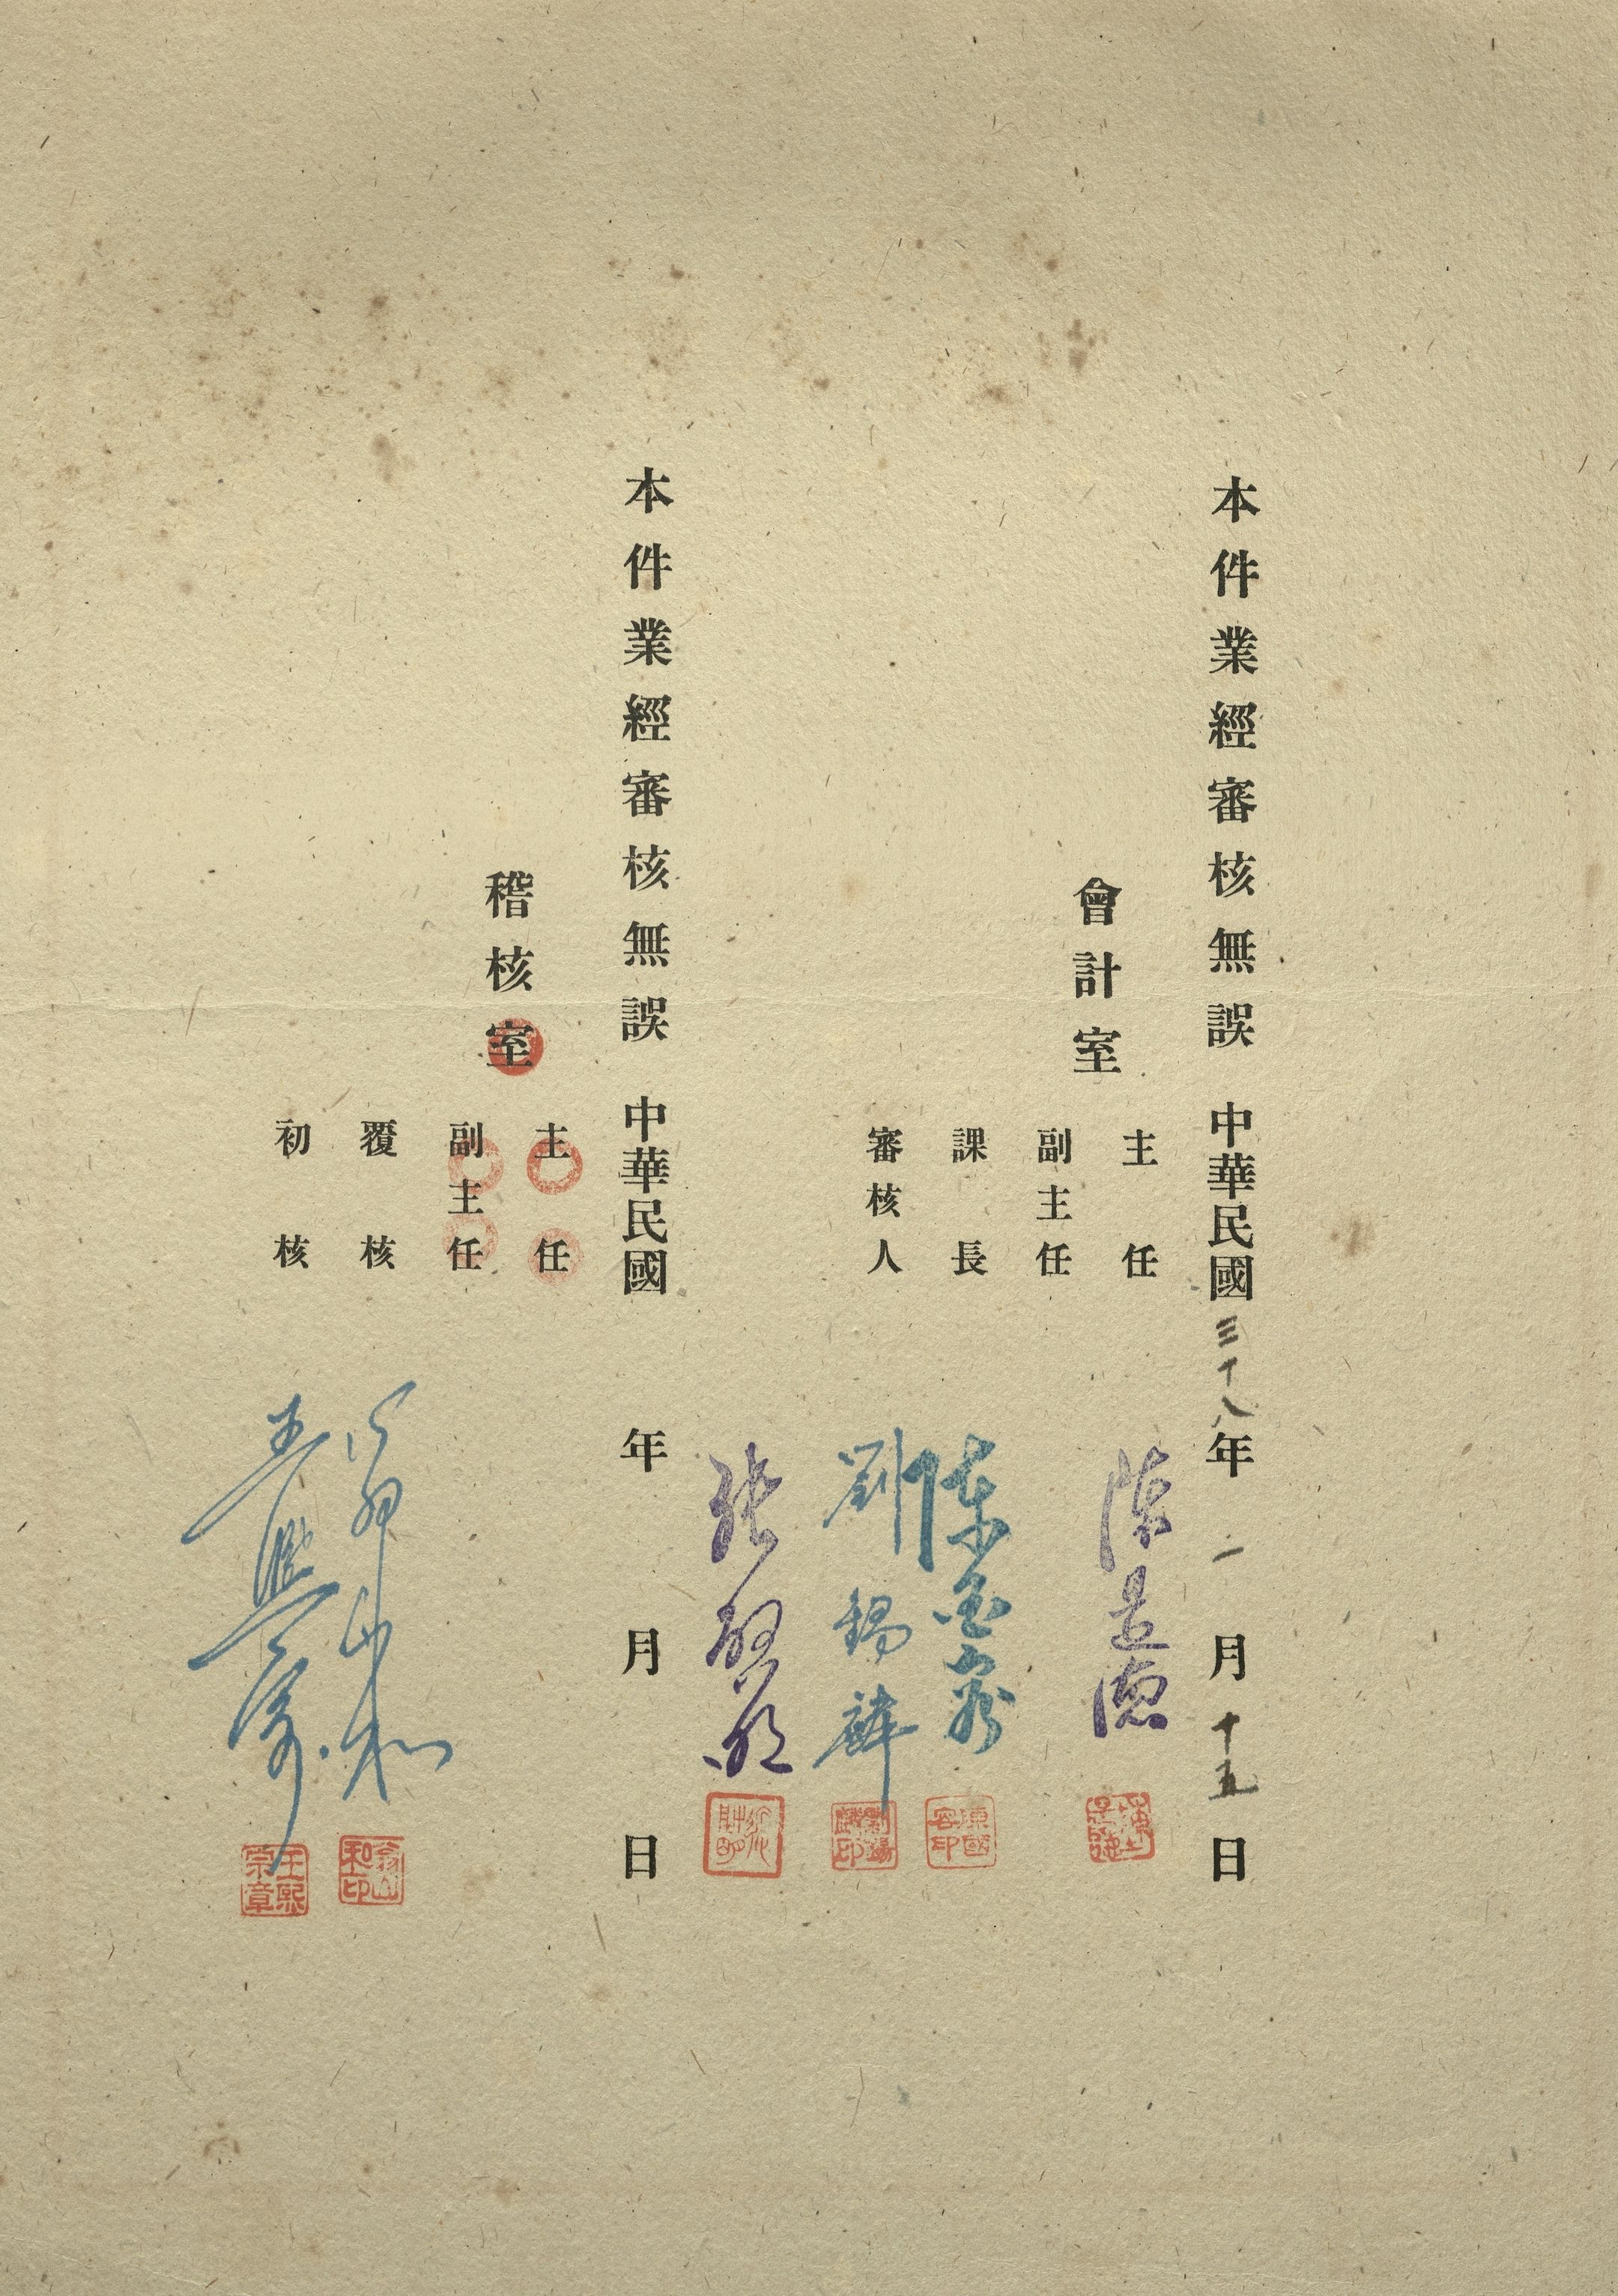 本件業經審核無誤 中華民國三十八年一月十五日
會計室
主任 陳
副主任
課長 陳國容
審核人 劉錫麟
陳國容印
劉錫麟印
張
本件業經審核無誤 中華民國 年 月 日
稽核室
主任
副主任
覆核 翁山和
初核 王熙宗
翁山和印
王熙宗章